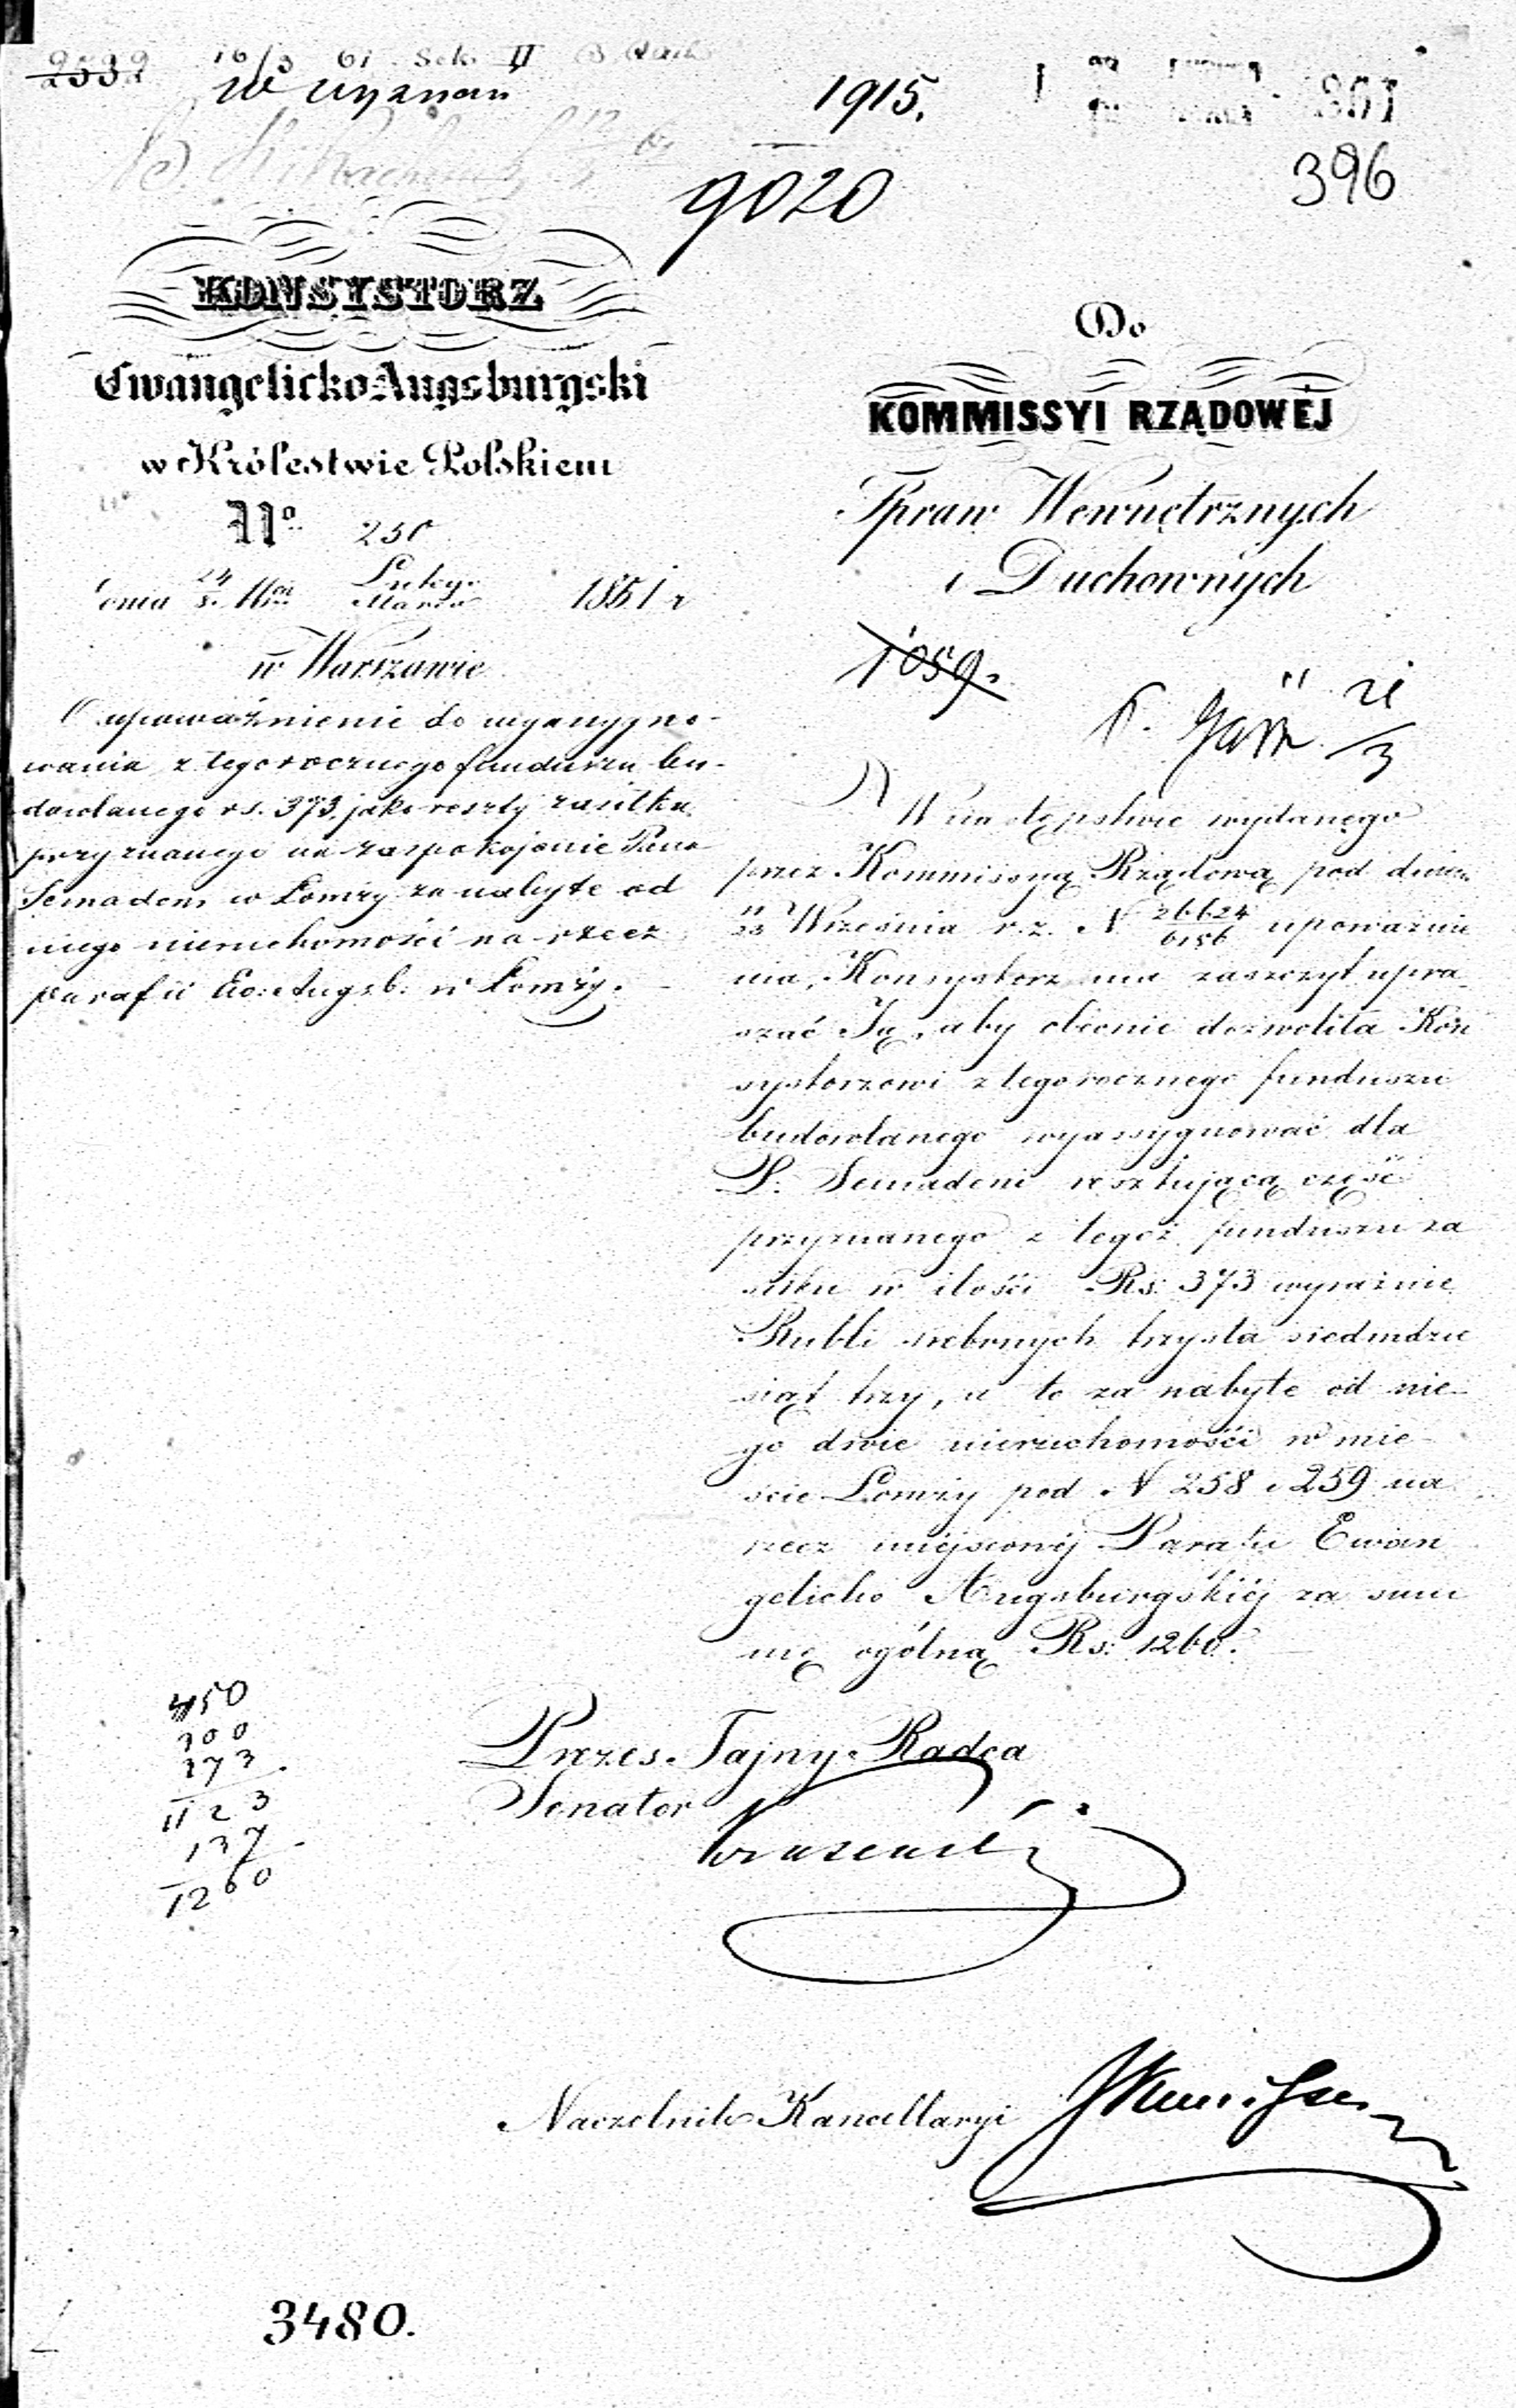 2532
16/3 61 Sek. II
1915.
9020
396
KONSYSTORZ
Ewangelicko-Augsburgski
w Królestwie Polskiem
No 250
dnia 24/8 Mca Lutego/Marca 1861 r
w Warszawie
O upoważnienie do wyassygno-
wania z tegorocznego funduszu bu-
dowlanego rs. 373, jako reszty zasiłku
przyznanego na zaspokojenie Pana
Semadeni w Łomży za nabyte od
niego nieruchomości na rzecz
parafii Ew: Augsb: w Łomży.
Do
KOMMISSYI RZĄDOWÉJ
Spraw Wewnętrznych
i Duchownych
1059.
21/3
W następstwie wydanego
przez Kommissyą Rządową pod dniem
11/23 Września r. z. N 26624/6156 upoważnie
nia, Konsystorz ma zaszczyt upra
szać Ją, aby obecnie dozwoliła Kon
systorzowi z tegorocznego funduszu
budowlanego wyassygnować dla
P. Semadeni resztującą część
przyznanego z tegoż funduszu za
siłku w ilości Rs: 373 wyraźnie
Rubli srebrnych trzysta siedmdzie
siąt trzy, a to za nabyte od nie-
go dwie nieruchomości w mie-
ście Łomży pod N 258 i 259 na
rzecz miejscowéj Parafii Ewan
gelicko Augsburgskiéj za sum
mę ogólną Rs: 1260.
450
300
373
1123
137
1260
Prezes. Tajny Radca
Senator
Naczelnik Kancellaryi
3480.